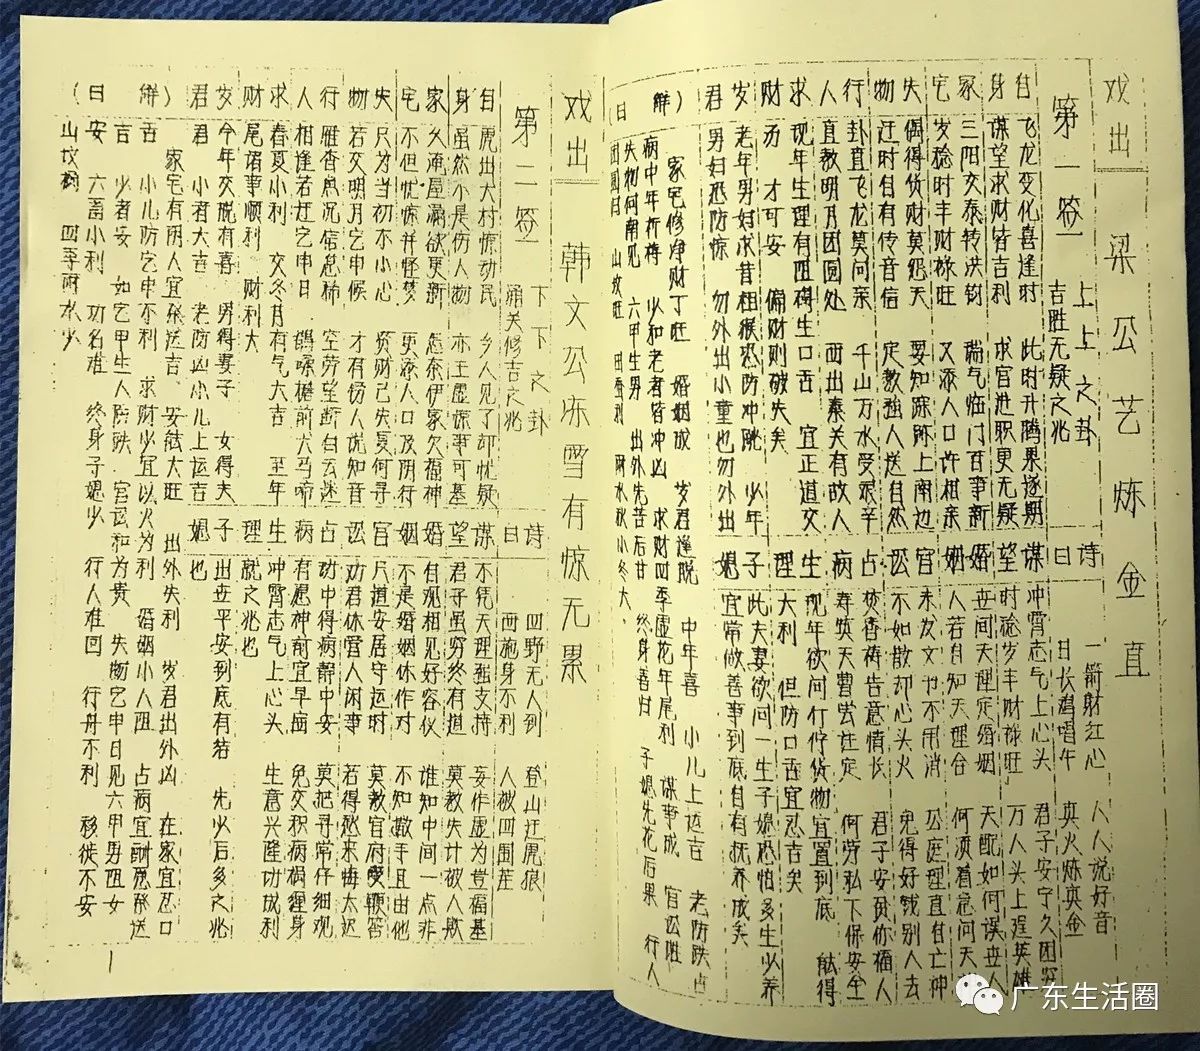 戏出 梁公艺炼金直
第一签 上上之卦
吉胜无疑之兆
自身
飞龙变化喜逢时 此时升腾果遂期
谋望求财皆吉利 求官进职更无疑
家宅
三阳交泰转洪钧 瑞气临门百事新
岁稔时丰财禄旺 又添人口许相亲
失物
偶得货财莫怨天 要知踪跡上南边
迁时自有传音信 定教强人送自然
行人
卦直飞龙莫问亲 千山万水受艰辛
直教明月团圆处 西出秦关有故人
求财
现年生理有阻碍生口舌 宜正道交
易 才可安 偏财则破失矣
岁君
老年男妇求昔祖猴恐防冲跳 少年
男妇恐防惊 勿外出小童也勿外出
诗曰
一箭财红心 人人说好音
日长鸡唱午 真火炼真金
谋望
冲霄志气上心头 君子安宁久困穷
时稔岁丰财禄旺 万人头上逞英雄
婚姻
世间天理定婚姻 天配如何误世人
人若自知天理合 何须着急问天
官讼
未发文书不用消 公庭理直自亡神
不如散却心头火 免得好钱别人去
占病
焚香祷告意情长 君子安贫你福人
寿筑天曹尝注定 何劳私下保安全
生理
现年欲问行仔货物宜置到底 献得
大利 但防口舌宜忍吉矣
子媳
此夫妻欲问一生子媳恐怕多生少养
宜常做善事到底自有抚养成矣
（解曰）
家宅修净财丁旺 婚姻成 岁君逢脱 中年喜 小儿上运吉 老防跌占
病中年祈祷 少和老者皆冲凶 求财四季虚花年尾利 谋事成 官讼胜
失物何南见 六甲生男 出外先苦后甘 终身喜归 子媳先花后果 行人
团圆归 山坟旺 田蚕利 财水秋小冬大
戏出 韩文公冻雪有惊无累
第二签 下下之卦
涌关修吉之兆
自身
虎出大村惊动民 乡人见了却忧疑
虽然不是伤人物 亦主虚惊事可基
家宅
久淹屋漏欲更新 怎奈伊家欠福神
不但忧惊并怪梦 更添人口及阴行
失物
只为当初不小心 贫财已失复何寻
若交明月它申候 才有傍人说知音
行人
雁香鱼沉信息稀 空劳望断白云迷
相逢若赶它申日 鹊噪檐前犬马啼
求财
春夏小利 交冬月有气大吉 至年
尾诸事顺利 财利大
岁君
今年交脱有喜 男得妻子 女得夫
君 小者大吉 老防凶小儿上运吉
诗曰
四野无人到 登山迂虎狼
西施身不利 人被四围茬
谋望
不凭天理强支持 妄作虚为岂福基
君子虽穷终有道 莫教失计被人欺
婚姻
自观相见好容仪 谁知中间一点非
不是婚姻休作对 不知撒手且由他
官讼
只道安居守运时 莫教官府受鞭笞
劝君休管人闲事 若得愁来悔太迟
占病
动中得病静中安 莫把寻常仔细观
有愿神前宜早亩 免交积病祸缠身
生理
冲霄志气上心头 生意兴隆功成利
就之兆也
子媳
出在平安到底有若 先少后多之兆
也
（解曰）
家宅有阴人宜祭送吉 安胎大旺 出外失利 岁君出外凶 在家宜忍口
舌 小儿防它申不利 求财少宜以火为利 婚姻小人阻 占病宜酬愿祭送
吉 少者安 如它甲生人防跌 官讼和为贵 失物它申日见六甲男阻女
安 六畜小利 功名难 终身子媳少 行人难回 行舟不利 移徙不安
山坟刑 四季雨水少
1
广东生活圈